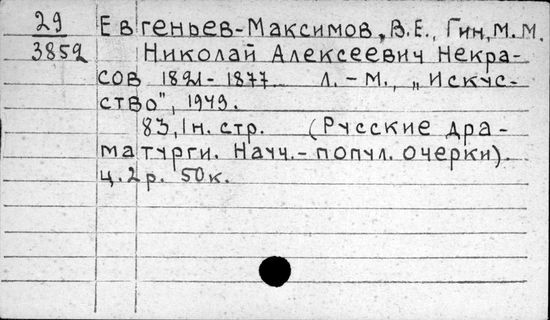 29 Евгеньев-Максимов, В.Е., Гин, М.М.
3852 Николай Алексеевич Некра-
сов 1821-1877 Л.-М., „Искус-
ство", 1949.
83, 1н. стр. (Русские дра-
матурги. Науч.-попул. очерки).
ц. 2 р. 50 к.